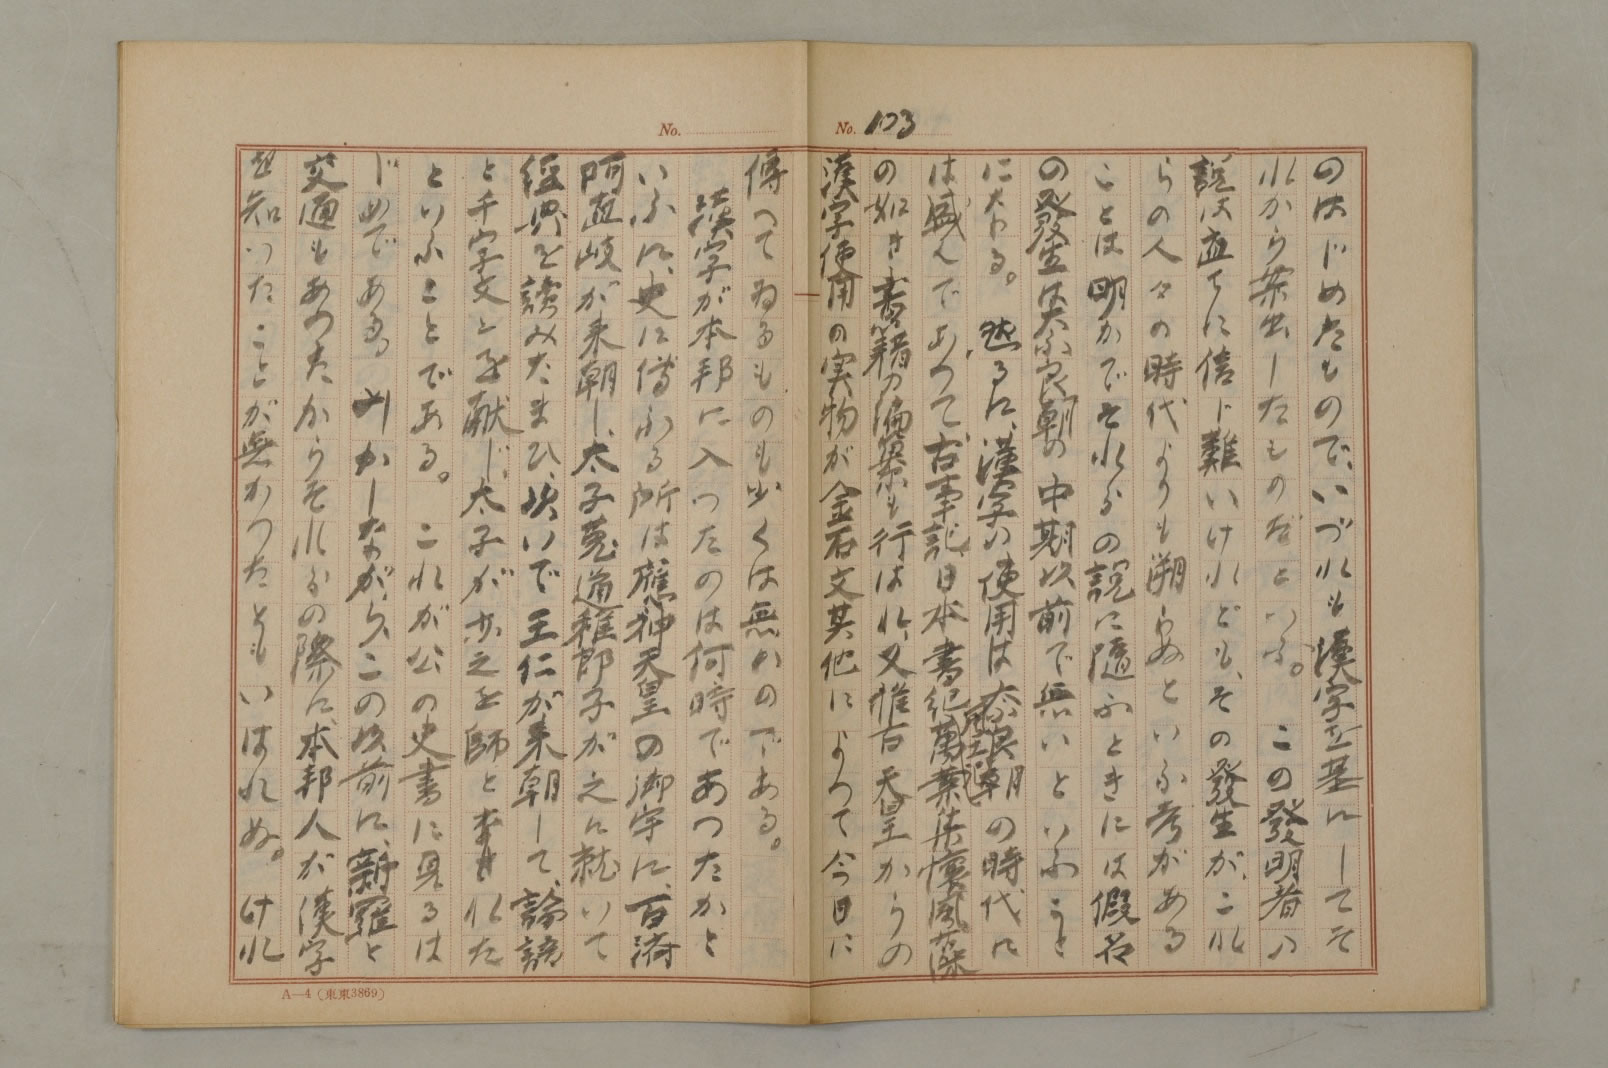 No. 103
のはじめたもので、いづれも漢字を基にしてそ
れから案出したものだといふ。この發明者の
説は直ちに信じ難いけれども、その發生が、これ
らの人々の時代よりも溯らぬといふ考がある
ことは明かでそれらの説に隨ふときには假名
の發生は奈良朝の中期以前で無いといふこと
になる。然るに、漢字の使用は奈良朝の時代に
は盛んであつて古事記日本書紀萬葉集懷風藻
の如き書籍の編纂も行はれ、又推古天皇からの
漢字使用の実物が金石文其他によつて今日に
No.
傳へてゐるものも少くは無いのである。
漢字が本邦に入つたのは何時であつたかと
いふに、史に傳ふる所は應神天皇の御宇に、百済
阿直岐が来朝し、太子菟道稚郎子が之に就いて
経典を讀みたまひ、次いで王仁が来朝して、論語
と千字文とを献じ、太子が亦之を師とされた
といふことである。これが公の史書に見るは
じめである。しかしながら、この以前に、新羅と
交通もあつたからそれらの際に、本邦人が漢字
を知つたことが無かつたともいはれぬ。けれ
A—4（東東3869）